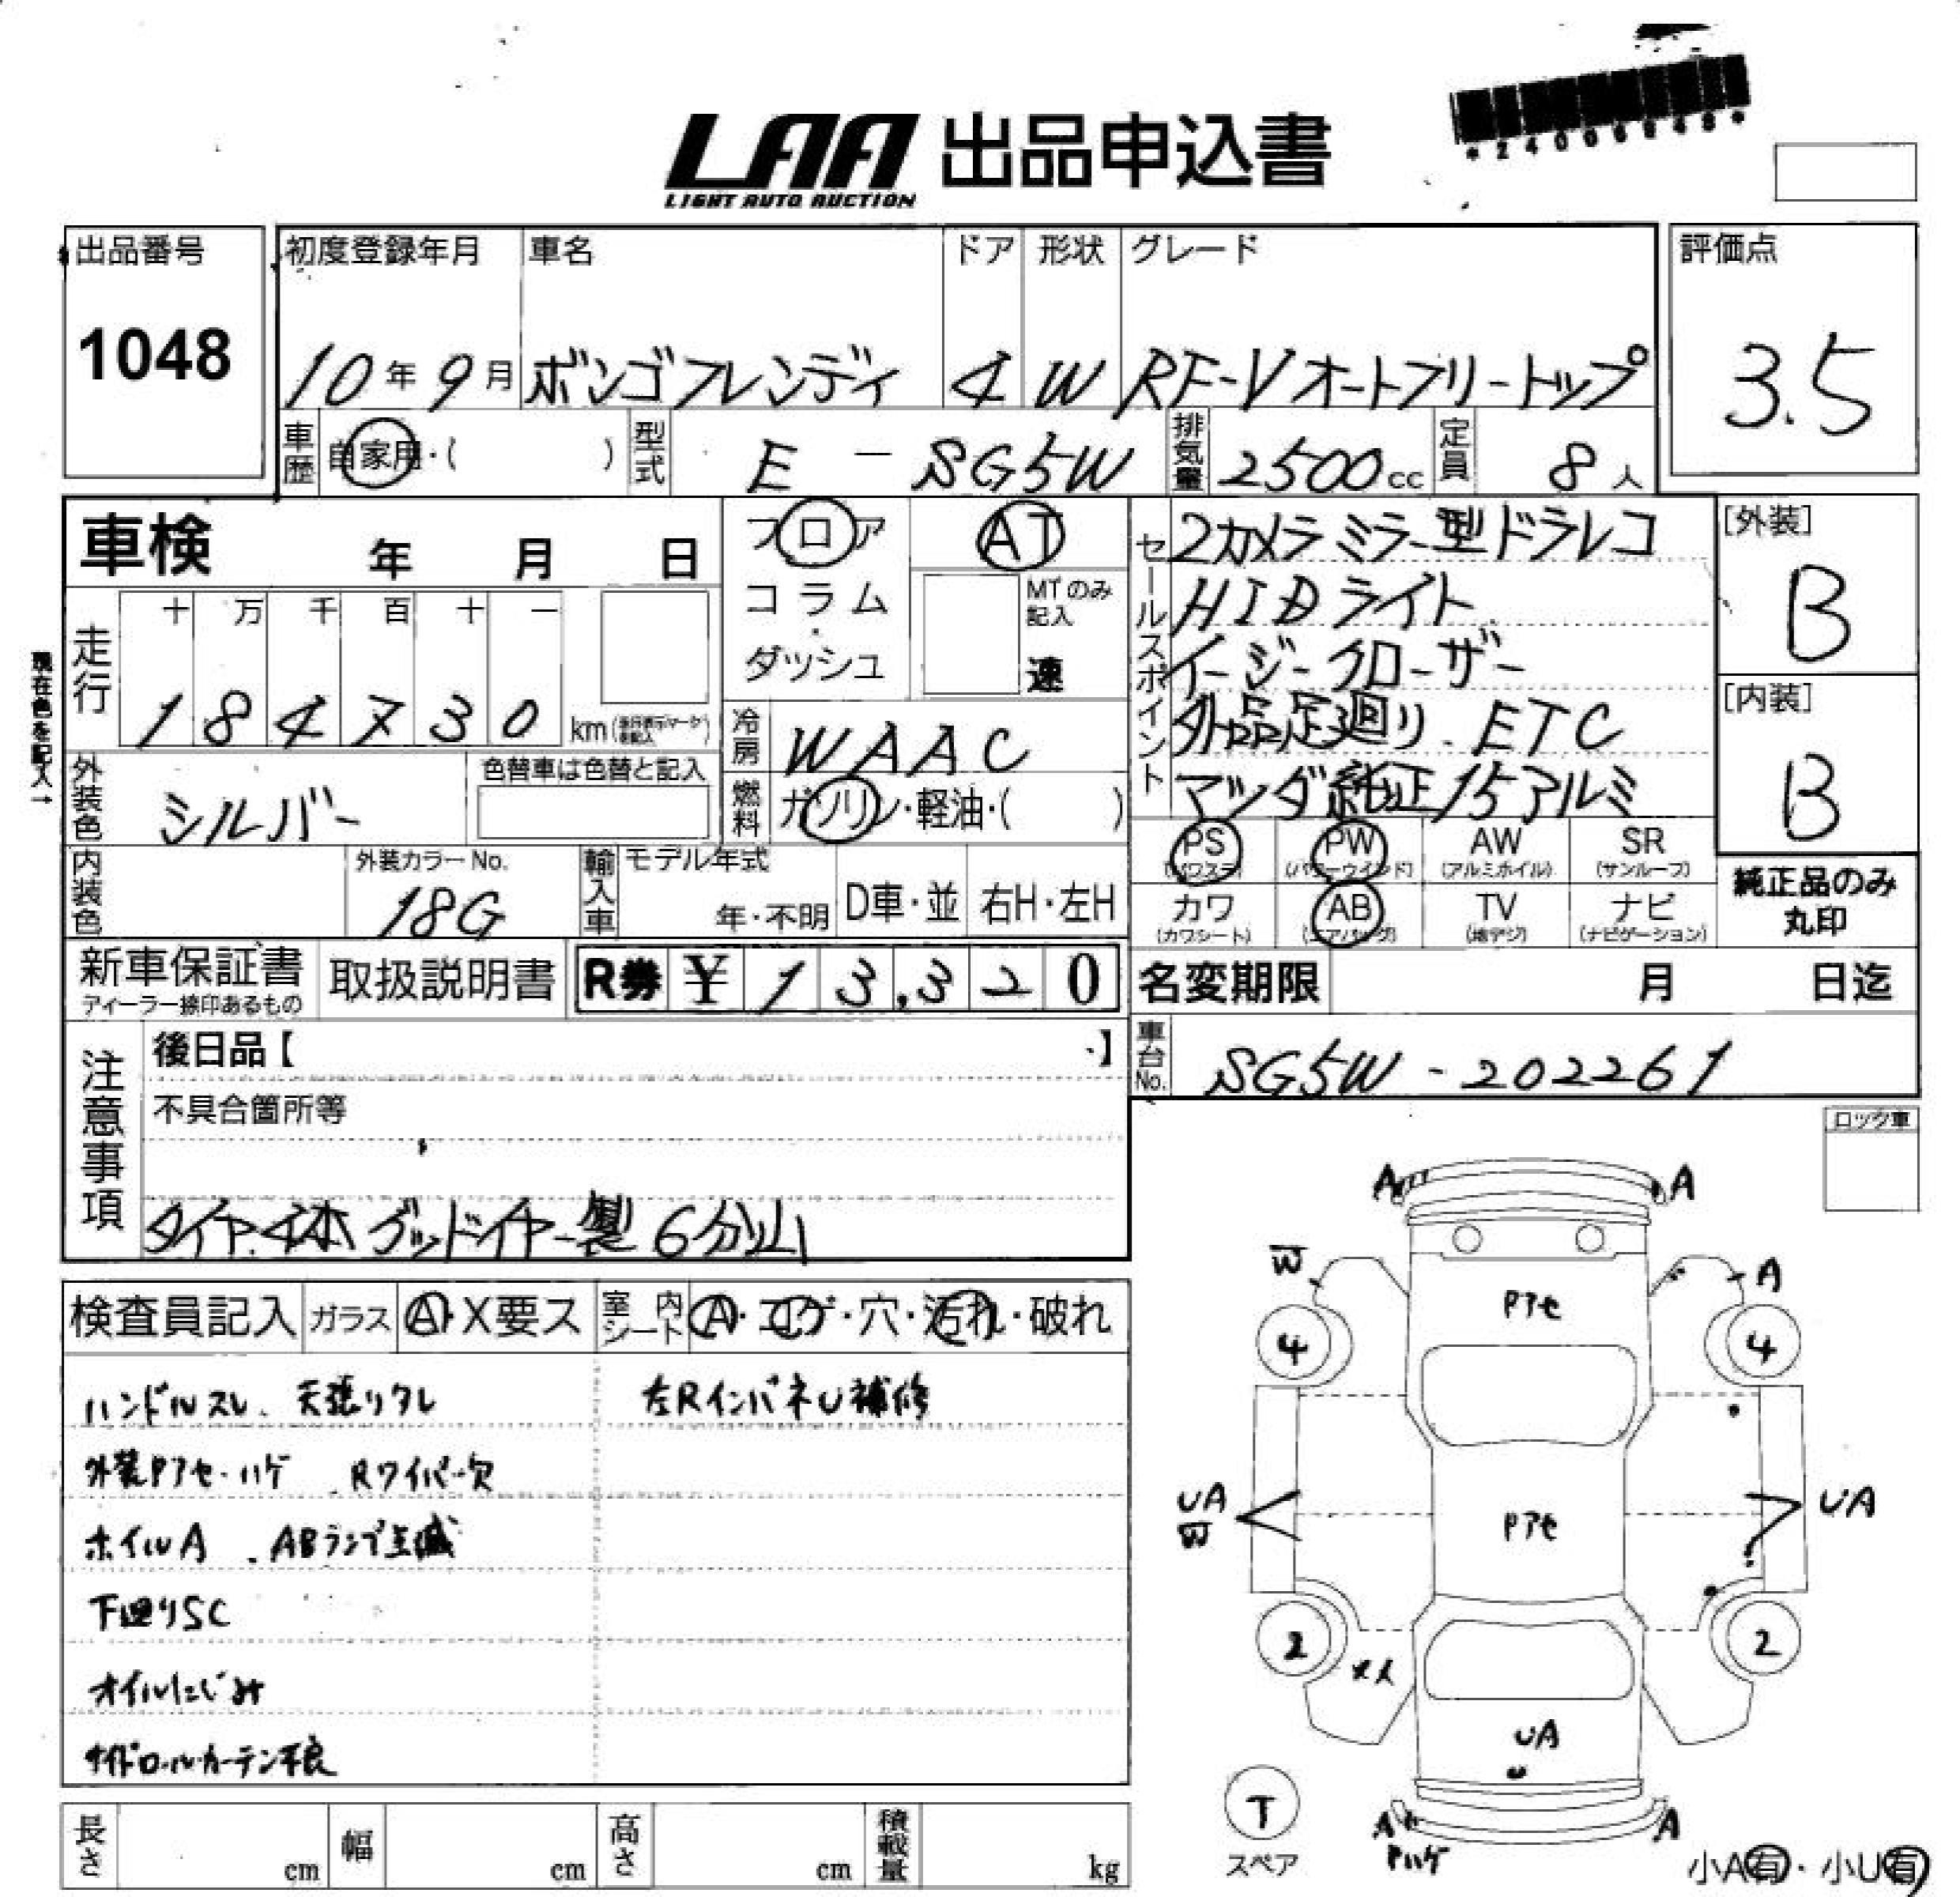 *24006848*
LAA 出品申込書
LIGHT AUTO AUCTION
出品番号 初度登録年月 車名 ドア 形状 グレード 評価点
1048 10年9月 ボンゴフレンディ 4 W RF-Vオートフリートップ 3.5
車歴 自家用・( ) 型式 E－SG5W 排気量 2500cc 定員 8人
車検 年 月 日 フロア AT セールスポイント 2カメラミラー型ドラレコ [外装]
コラム・ MTのみ記入 HIDライト B
走行 十 万 千 百 十 一 ダッシュ 速 イージークローザー
現在色を記入→ 184730 km 冷房 WAAC 外品足廻り、ETC [内装]
外装色 シルバー 色替車は色替と記入 燃料 ガソリン・軽油・( ) マツダ純正15アルミ B
内装色 外装カラーNo. 輸入車 モデル年式 PS PW AW SR
(パワステ) (パワーウインド) (アルミホイル) (サンルーフ) 純正品のみ
18G 年・不明 D車・並 右H・左H カワ AB TV ナビ 丸印
(カワシート) (エアバッグ) (地デジ) (ナビゲーション)
新車保証書 取扱説明書 R券 ¥13,320 名変期限 月 日迄
ディーラー捺印あるもの
注意事項 後日品【 】 車台No. SG5W-202261
不具合箇所等 ロック車
タイヤ4本グッドイヤー製6分山
検査員記入 ガラス A・X要ス 室内シート A・コゲ・穴・汚れ・破れ
ハンドルスレ、天張りタレ 左RインパネU補修
外装Pアセ・ハゲ、Rワイパー欠
ホイルA、ABランプ点滅
下廻りSC
オイルにじみ
サイドロールカーテン不良
長さ cm 幅 cm 高さ cm 積載量 kg
A A
W A
Pアセ
4 4
UA UA
W Pアセ
2 2
UA
U
T
スペア
A A
Pハゲ
小A有・小U有